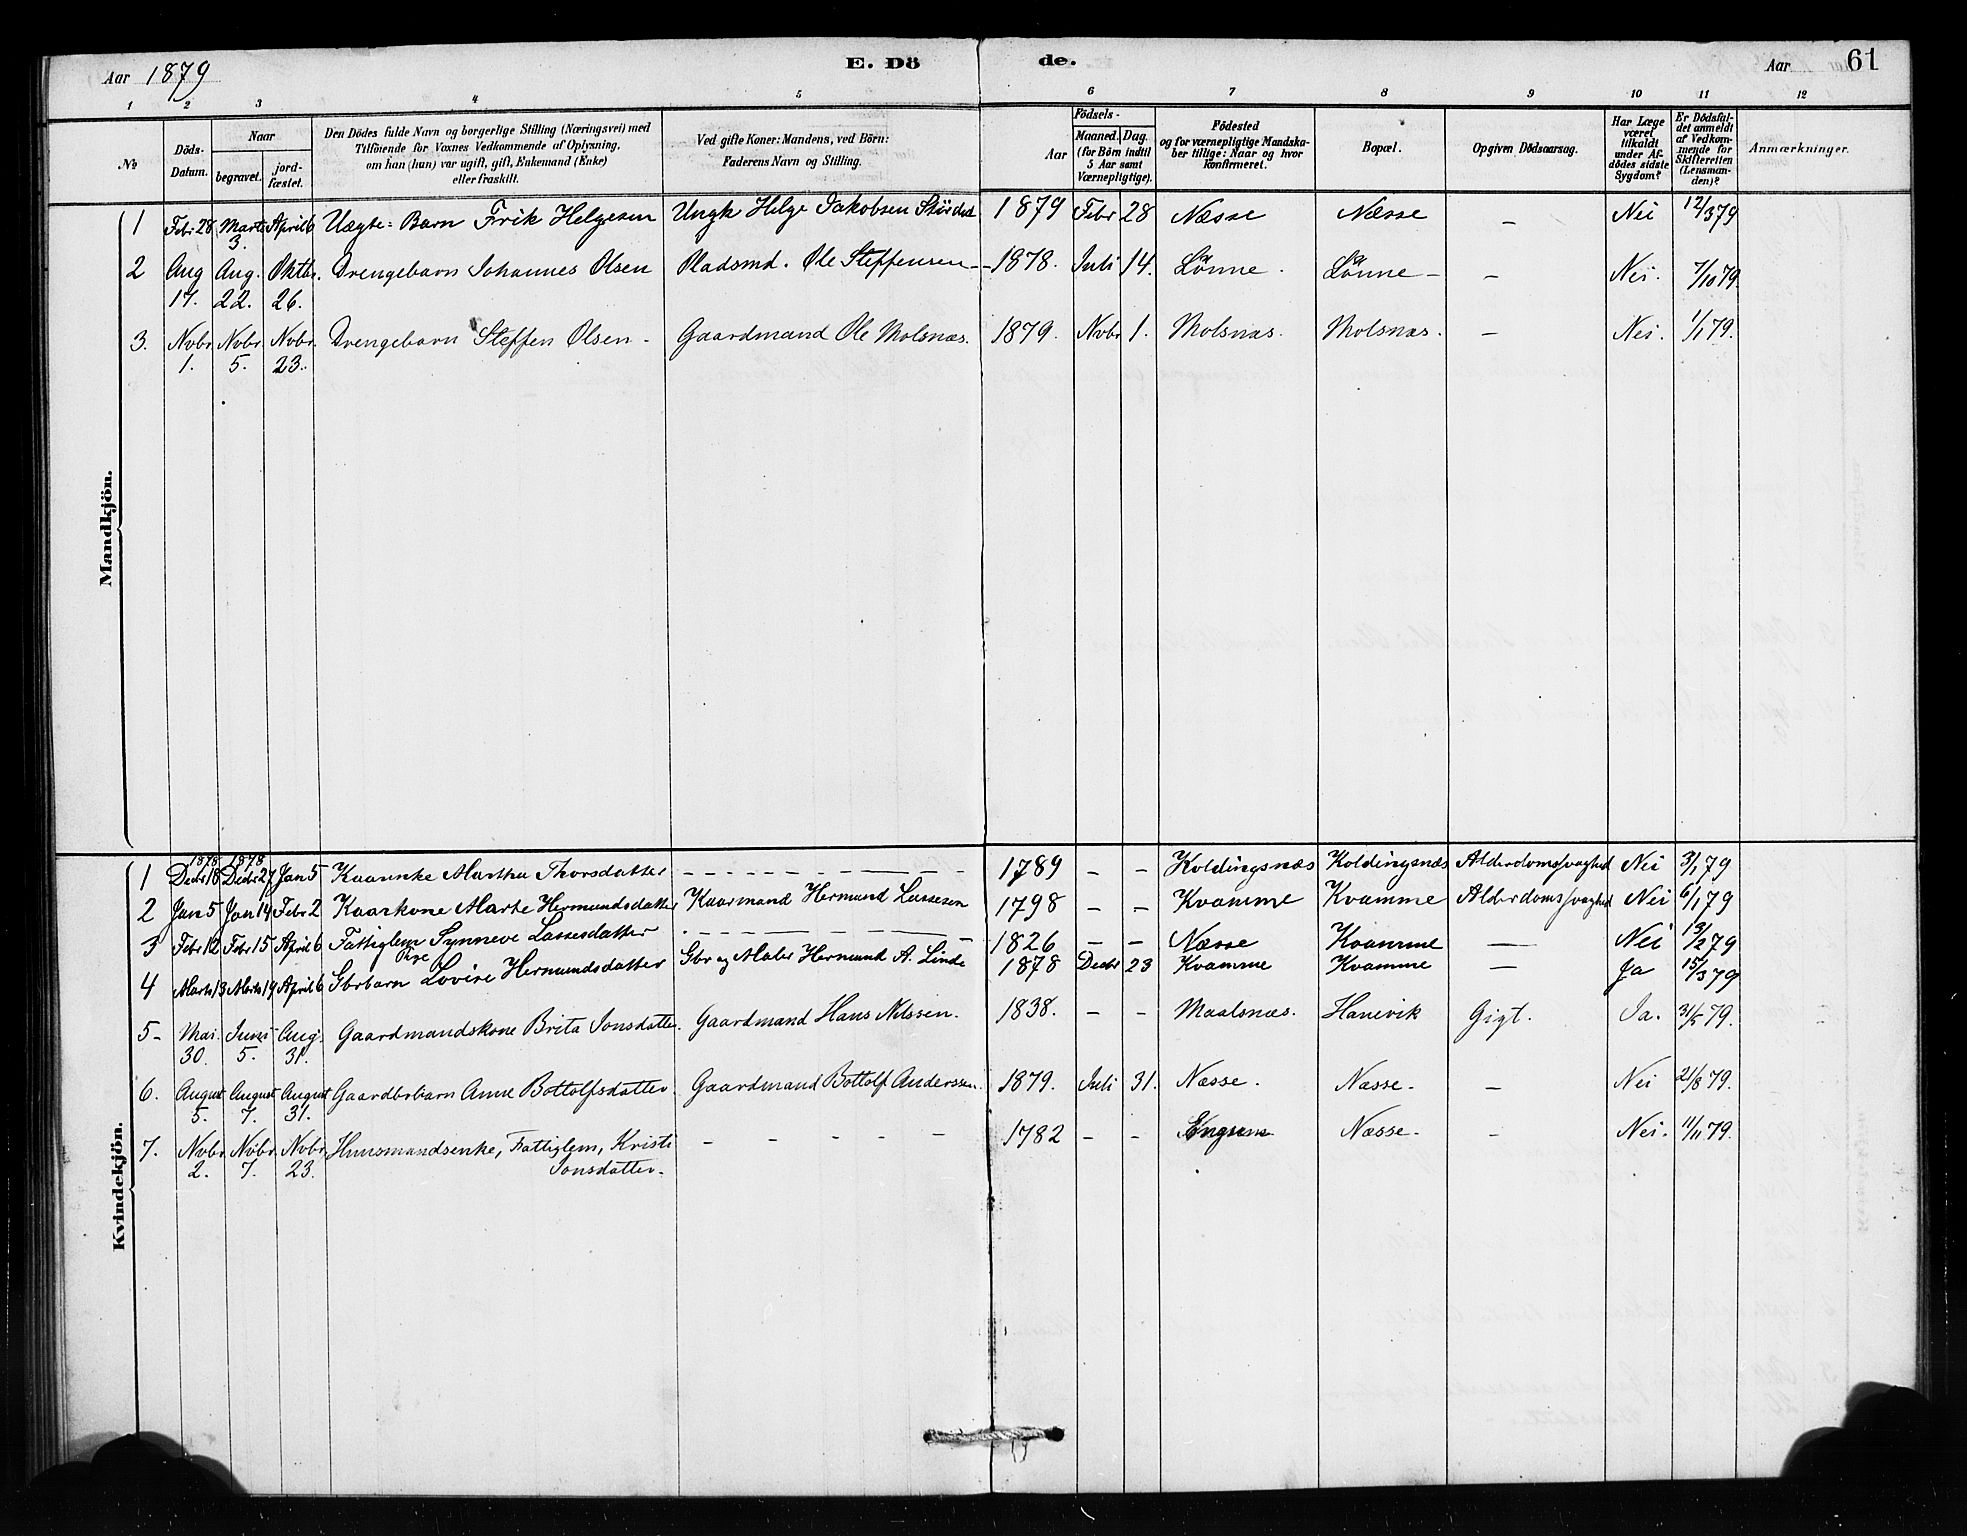 Aar 1879 E. Dö de. Aar 61
1 2 3 4 5 6 7 8 9 10 11 12
№
Döds-Datum.
Naar
begravet. jord-fæstet.
Den Dödes fulde Navn og borgerlige Stilling (Næringsvei) med
Tilföiende for Voxnes Vedkommende af Oplysning,
om han (hun) var ugift, gift, Enkemand (Enke)
eller fraskilt.
Ved gifte Koner: Mandens, ved Börn:
Faderens Navn og Stilling.
Födsels-
Aar
Maaned. Dag.
(for Börn indtil
5 Aar samt
Værnepligtige).
Födested
og for værnepligtige Mandska-
ber tillige: Naar og hvor
konfirmeret.
Bopæl.
Opgiven Dödsaarsag.
Har Læge
været
tilkaldt
under Af-
dödes sidste
Sygdom?
Er Dödsfal-
det anmeldt
af Vedkom-
mende for
Skifteretten
(Lensman-
den)?
Anmærkninger.
Mandkjön.
1 Febr 28 Marts 3. April 6 Uægte: Barn Erik Helgesen Ungk Helge Jakobsen 1879 Febr 28 Næsse Næsse – Nei 12/3 79
2 Aug 17. Aug. 22. Oktbr. 26. Drengebarn Johannes Olsen Pladsmd. Ole Steffensen – 1878. Juli 14. Lønne. Lønne – – Nei. 7/10 79.
3. Nvbr. 1. Nvbr. 5. Nvbr. 23. Drengebarn Steffen Olsen – Gaardmand Ole Molsnæs. 1879. Nvbr 1. Molsnæs. Molsnæs. – Nei. 1/1 79.
Kvindekjön.
1 1878 Decbr 18 1878 Decbr 27 Jan 5 Kaarenke Martha Thorsdatter – – – – – – 1789 – – Koldingsnæs Koldingsnæs Alderdomssvaghed Nei 3/1 79
2 Jan 5 Jan 14 Febr 2 Kaarkone Marte Hermundsdatter Kaarmand Hermund Lassesen 1798 – – Kvamme Kvamme Alderdomssvaghed Nei 6/1 79
3 Febr 12 Febr 15 April 6 Fattiglem Synneve Lassesdatter – – – – – 1826 – – Næsse Kvamme – Nei 13/2 79
4 Marts 13 Marts 19 April 6 Gbrbarn Lovise Hermundsdatter Gbr og Maler Hermund A. Linde 1878 Decbr 23 Kvamme Kvamme – Ja 15/3 79
5 – Mai 30. Juni 5. Aug. 31. Gaardmandskone Brita Jonsdatter. Gaardmand Hans Nilssen. 1838. – – Maalsnæs. Hanevik Gigt. Ja. 31/5 79.
6. August 5. August 7. August 31. Gaardbrbarn Anne Bottolfsdatter Gaardmand Bottolf Anderssen. 1879. Juli 31. Næsse. Næsse. – Nei 21/8 79.
7. Nvbr 2. Nvbr 7. Nvbr 23. Huusmandsenke, Fattiglem, Kristi
Jonsdatter. – – – – – 1782 – – Næsse – – Nei. 11/11 79.